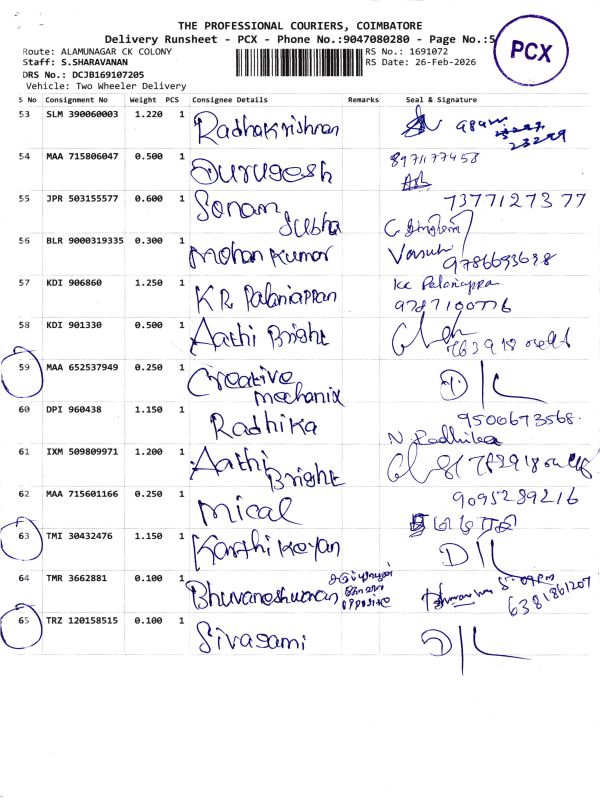 THE PROFESSIONAL COURIERS, COIMBATORE
Delivery Runsheet - PCX - Phone No.:9047080280 - Page No.:5
PCX
Route: ALAMUNAGAR CK COLONY
RS No.: 1691072
Staff: S.SHARAVANAN
RS Date: 26-Feb-2026
DRS No.: DCJB169107205
Vehicle: Two Wheeler Delivery
S No Consignment No Weight PCS Consignee Details Remarks Seal & Signature
53 SLM 390060003 1.220 1 Radhakrishnan
54 MAA 715806047 0.500 1 Durugesh 8971177458
55 JPR 503155577 0.600 1 Sonam Subha 7377127377
56 BLR 9000319335 0.300 1 Mohan Kumar Vasuki
57 KDI 906860 1.250 1 K R Palaniappan KR Palaniappa
9787100776
58 KDI 901330 0.500 1 Aathi Bright
59 MAA 652537949 0.250 1 Creative mechanix D/L
60 DPI 960438 1.150 1 Radhika 9500673568
N. Radhika
61 IXM 509809971 1.200 1 Aathi Bright
62 MAA 715601166 0.250 1 Mical 9095289216
63 TMI 30432476 1.150 1 Karthikeyan D/L
64 TMR 3662881 0.100 1 Bhuvaneshwaran opposite 6381861207
65 TRZ 120158515 0.100 1 Sivagami D/L